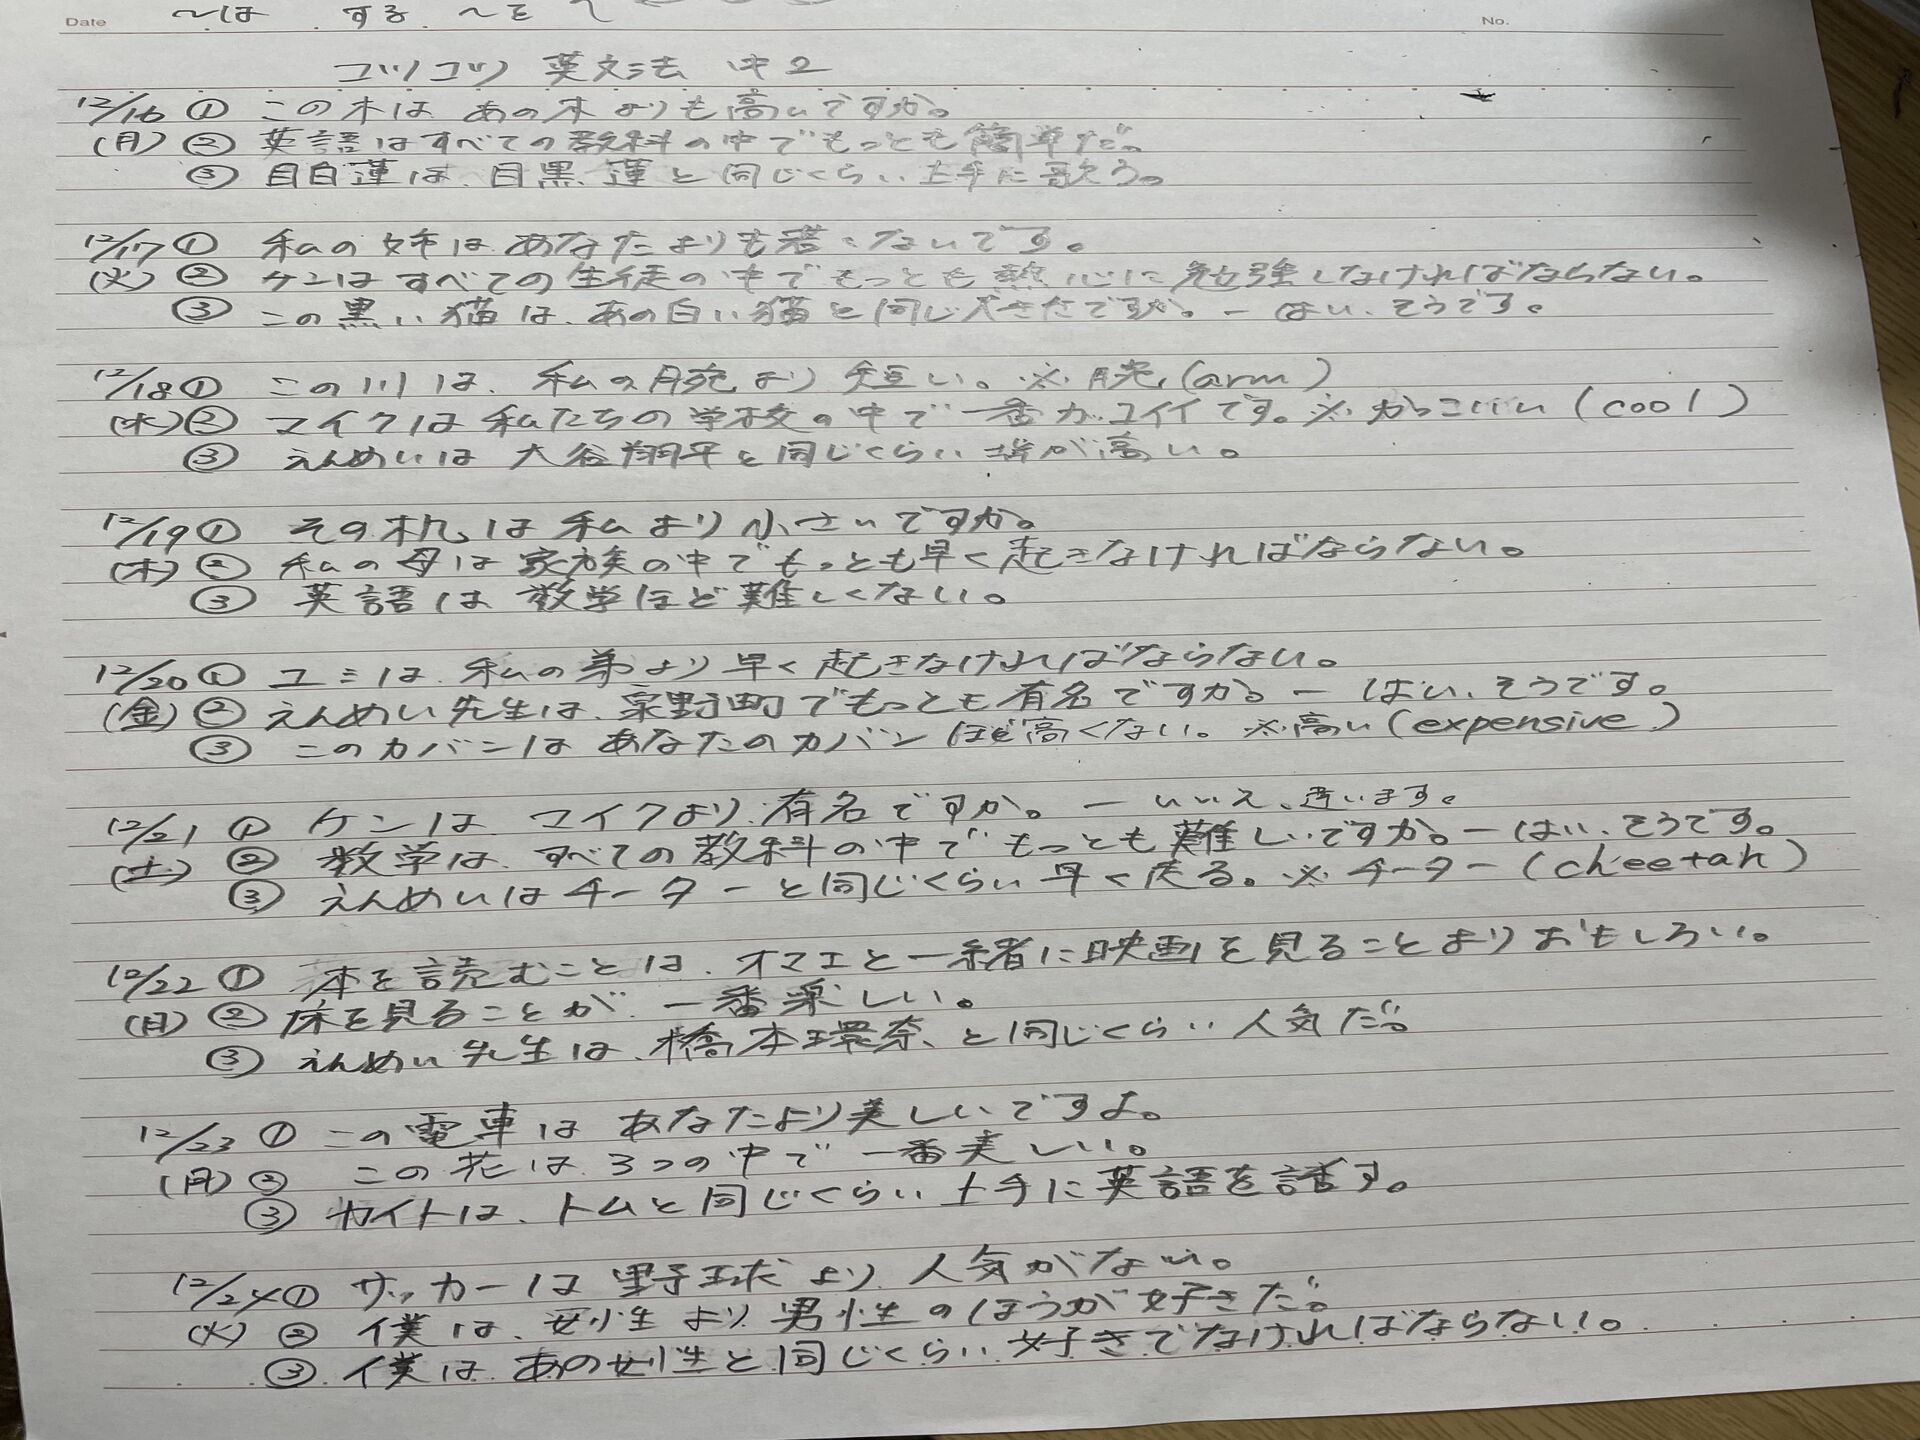 Date ～は する ～を
No.
コツコツ 英文法 中2
12/16 ① この木は あの木よりも高いですか。
(月) ② 英語はすべての教科の中でもっとも簡単だ。
③ 目白蓮は、目黒蓮と同じくらい上手に歌う。
12/17 ① 私の姉はあなたよりも若くないです。
(火) ② ケンはすべての生徒の中でもっとも熱心に勉強しなければならない。
③ この黒い猫は、あの白い猫と同じ大きさですか。ー はい、そうです。
12/18 ① この川は、私の腕より短い。※腕(arm)
(水) ② マイクは私たちの学校の中で一番カッコイイです。※かっこいい(cool)
③ えんめいは大谷翔平と同じくらい背が高い。
12/19 ① その机は私より小さいですか。
(木) ② 私の母は家族の中でもっとも早く起きなければならない。
③ 英語は数学ほど難しくない。
12/20 ① ユミは、私の弟より早く起きなければならない。
(金) ② えんめい先生は、泉野町でもっとも有名ですか。ー はい、そうです。
③ このカバンはあなたのカバンほど高くない。※高い(expensive)
12/21 ① ケンは マイクより有名ですか。ー いいえ、違います。
(土) ② 数学は、すべての教科の中でもっとも難しいですか。ーはい、そうです。
③ えんめいはチーターと同じくらい早く走る。※チーター(cheetah)
12/22 ① 本を読むことは、オマエと一緒に映画を見ることよりおもしろい。
(日) ② 床を見ることが、一番楽しい。
③ えんめい先生は、橋本環奈と同じくらい人気だ。
12/23 ① この電車はあなたより美しいですよ。
(月) ② この花は 3つの中で一番美しい。
③ カイトは、トムと同じくらい上手に英語を話す。
12/24 ① サッカーは野球より人気がない。
(火) ② 僕は、女性より男性のほうが好きだ。
③ 僕はあの女性と同じくらい好きでなければならない。